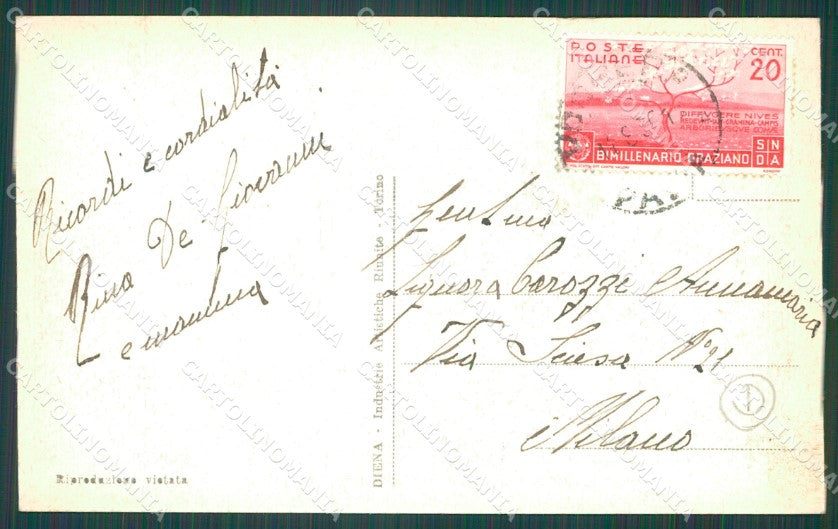 Ricordi e cordialità
Rina De Giovanni
e mamma
Riproduzione vietata
DIENA - Industrie Artistiche Riunite - Torino
POSTE
ITALIANE
CENT.
20
DIFFVGERE NIVES
REDEVNT IAM GRAMINA CAMPIS
ARBORIBVSQVE COMAE
BIMILLENARIO ORAZIANO
S N
D A
Gent.ma
Signora Carozzi Annamaria
Via Sciesa N° 21
Milano
1
CARTOLINOMANIA